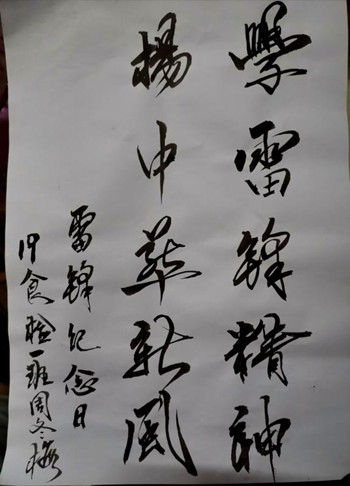 學雷锋精神
揚中華新風
雷锋纪念日
19食检一班周冬梅